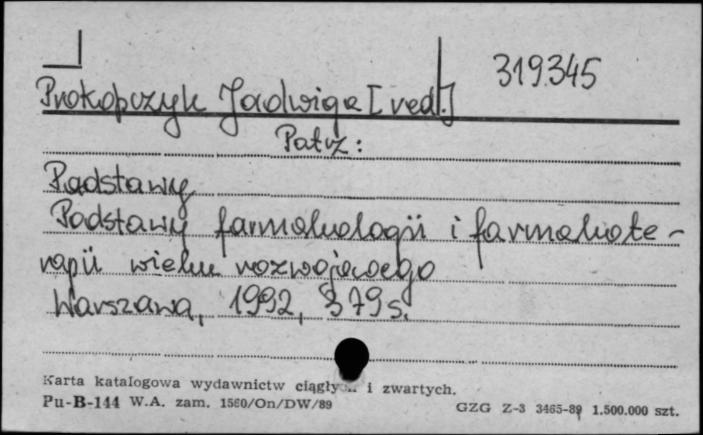 319345
Prokopczyk Jadwiga [red.]
Patrz:
Podstawy
Podstawy farmakologii i farmakote-
rapii wieku rozwojowego
Warszawa, 1992, 379 s.
Karta katalogowa wydawnictw ciągłych i zwartych.
Pu-B-144 W.A. zam. 1560/On/DW/89
GZG Z-3 3465-89 1.500.000 szt.